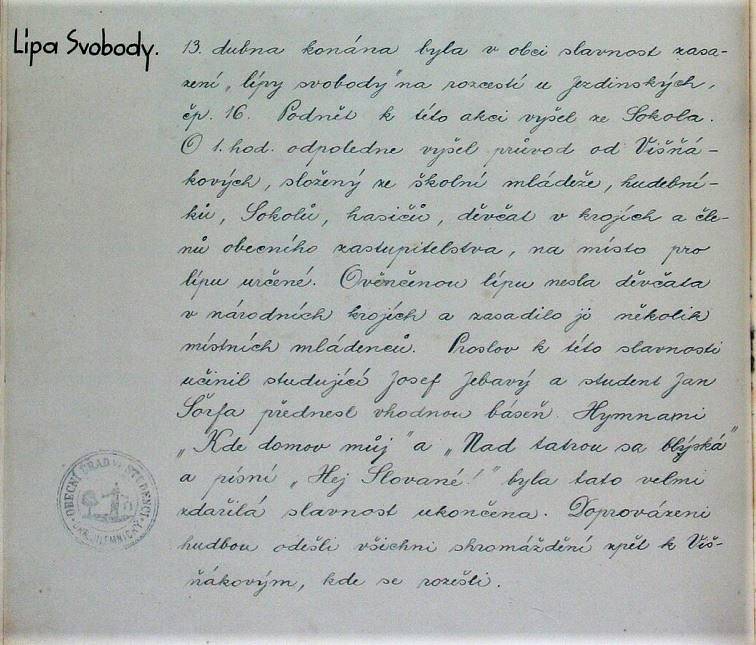 Lípa Svobody.
13. dubna konána byla v obci slavnost zasa-
zení „lípy svobody" na rozcestí u Jezdinských,
čp. 16. Podnět k této akci vyšel ze Sokola.
O 1. hod. odpoledne vyšel průvod od Višňá-
kových, složený ze školní mládeže, hudební-
ků, Sokolů, hasičů, děvčat v krojích a čle-
nů obecního zastupitelstva, na místo pro
lípu určené. Ověnčenou lípu nesla děvčata
v národních krojích a zasadilo ji několik
místních mládenců. Proslov k této slavnosti
učinil studující Josef Jebavý a student Jan
Šorfa přednesl vhodnou báseň. Hymnami
„Kde domov můj" a „Nad tatrou sa blýská"
a písní „Hej Slované!" byla tato velmi
zdařilá slavnost ukončena. Doprovázeni
hudbou odešli všichni shromáždění zpět k Viš-
ňákovým, kde se rozešli.
OBECNÍ ÚŘAD VE STUDENCI
OKR. JILEMNICKÝ